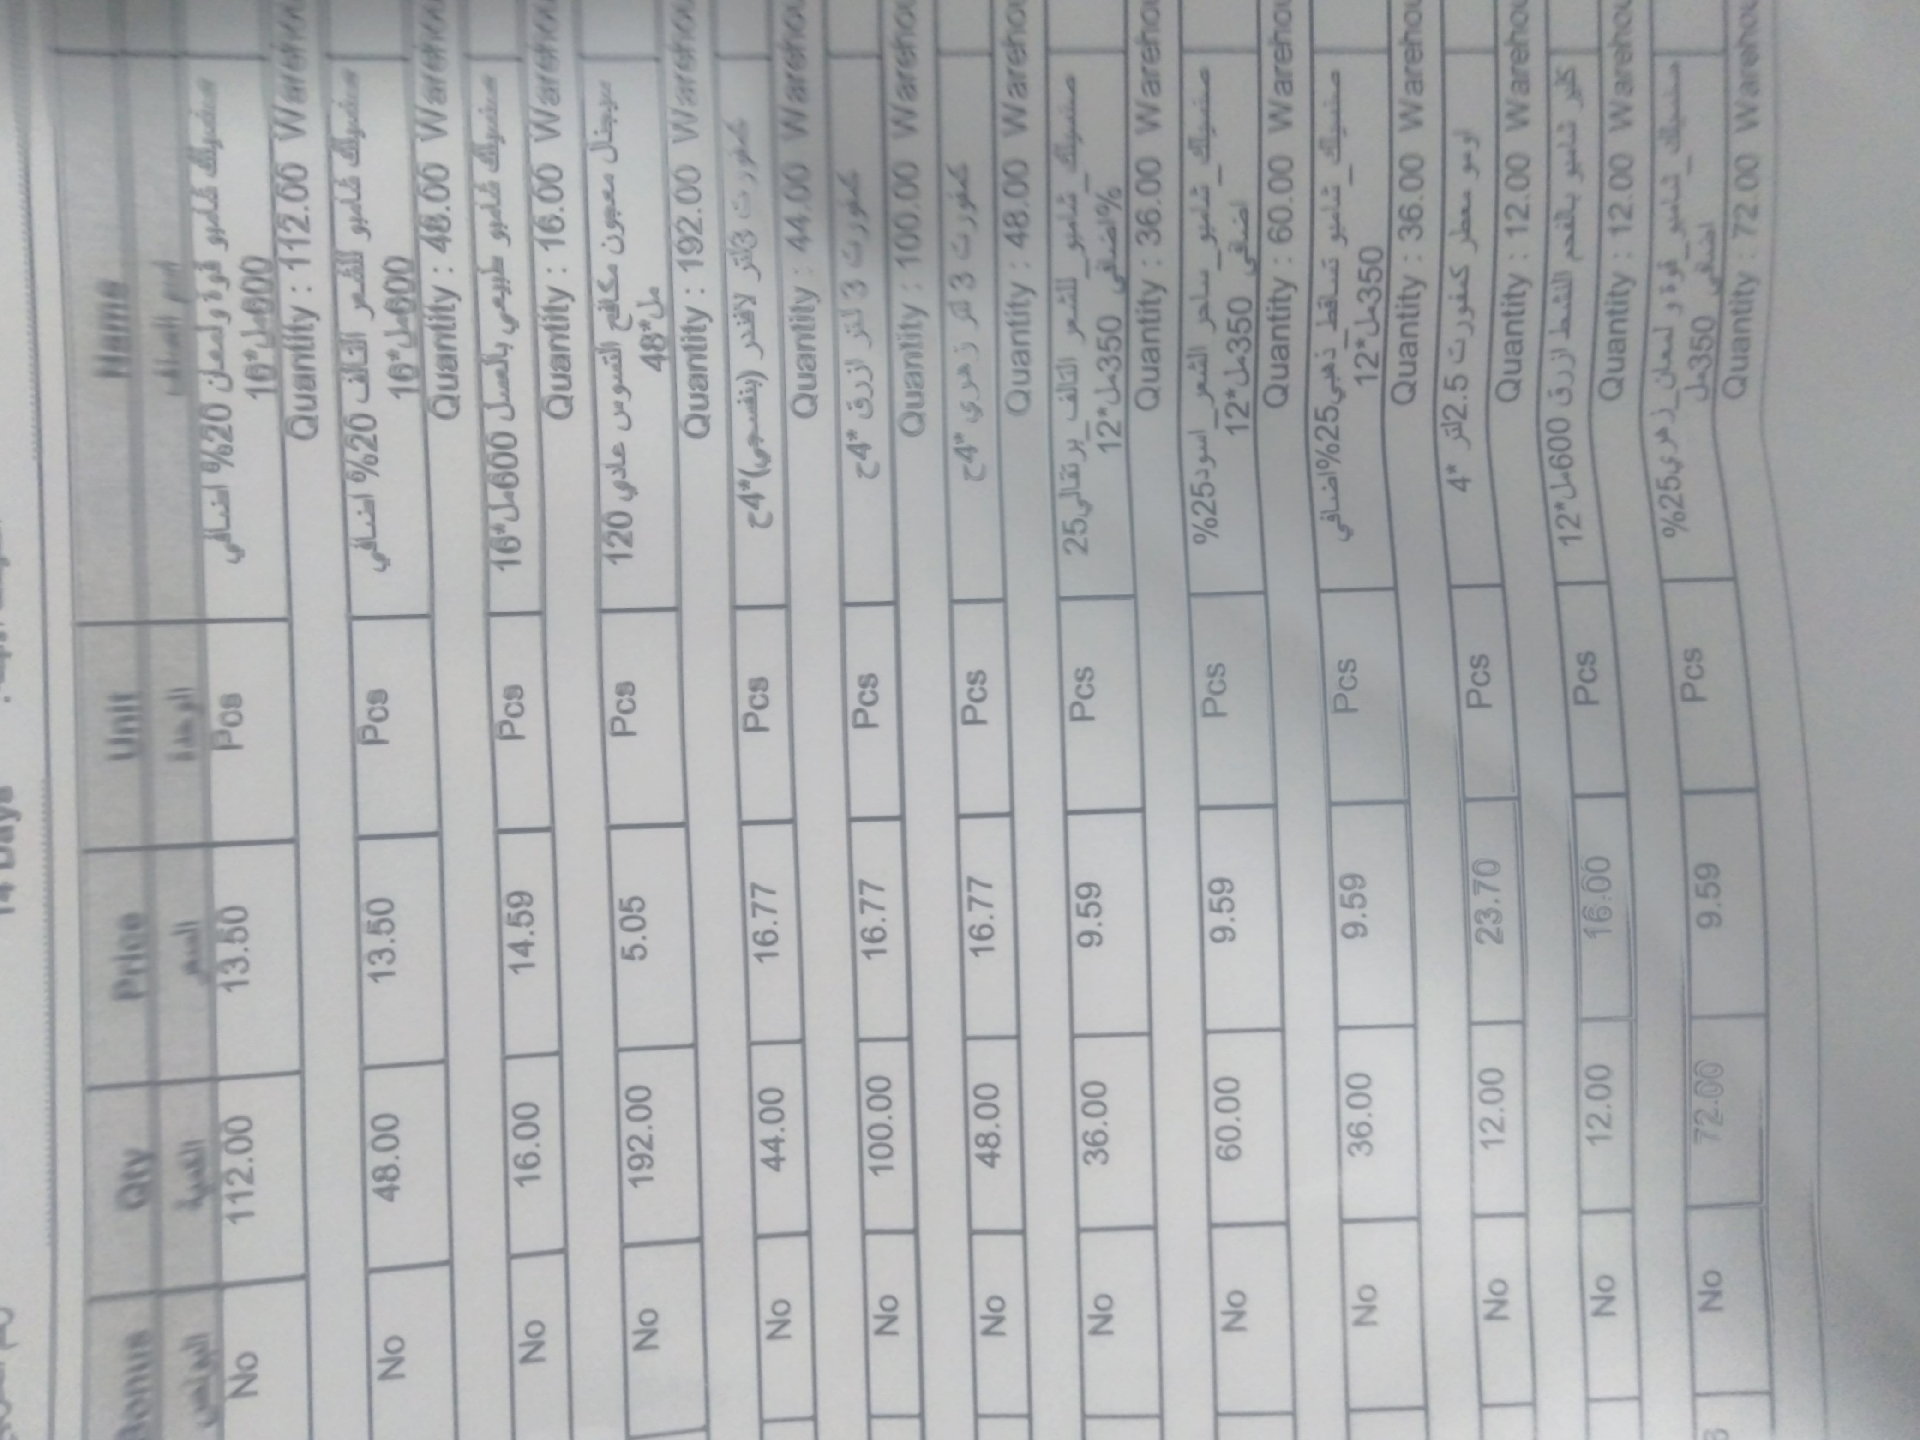 14 Days
Bonus Qty Price Unit Name
البونص الكمية السعر الوحدة اسم الصنف
No 112.00 13.50 Pcs صنسيلك شامبو قوة ولمعان 20% اضافي
600مل*16
Quantity : 112.00 Warehou
No 48.00 13.50 Pcs صنسيلك شامبو للشعر التالف 20% اضافي
600مل*16
Quantity : 48.00 Warehou
No 16.00 14.59 Pcs صنسيلك شامبو طبيعي بالعسل 600مل*16
Quantity : 16.00 Warehou
No 192.00 5.05 Pcs سيجنال معجون مكافح التسوس عادي 120
مل*48
Quantity : 192.00 Warehou
No 44.00 16.77 Pcs كمفورت 3لتر لافندر (بنفسجي)*4ح
Quantity : 44.00 Warehou
No 100.00 16.77 Pcs كمفورت 3 لتر ازرق *4ح
Quantity : 100.00 Warehou
No 48.00 16.77 Pcs كمفورت 3 لتر زهري *4ح
Quantity : 48.00 Warehou
No 36.00 9.59 Pcs صنسيلك_شامبو_للشعر التالف_برتقالي25
%اضافي 350مل*12
Quantity : 36.00 Warehou
No 60.00 9.59 Pcs صنسيلك_شامبو_ساحر الشعر_اسود25%
اضافي 350مل*12
Quantity : 60.00 Warehou
No 36.00 9.59 Pcs صنسيلك_شامبو تساقط_ذهبي25%اضافي
350مل*12
Quantity : 36.00 Warehou
No 12.00 23.70 Pcs اومو معطر كمفورت 2.5لتر *4
Quantity : 12.00 Warehou
No 12.00 16.00 Pcs كلير شامبو بالفحم النشط ازرق 600مل*12
Quantity : 12.00 Warehou
No 72.00 9.59 Pcs صنسيلك_شامبو_قوة و لمعان_زهري25%
اضافي 350مل
Quantity : 72.00 Warehou